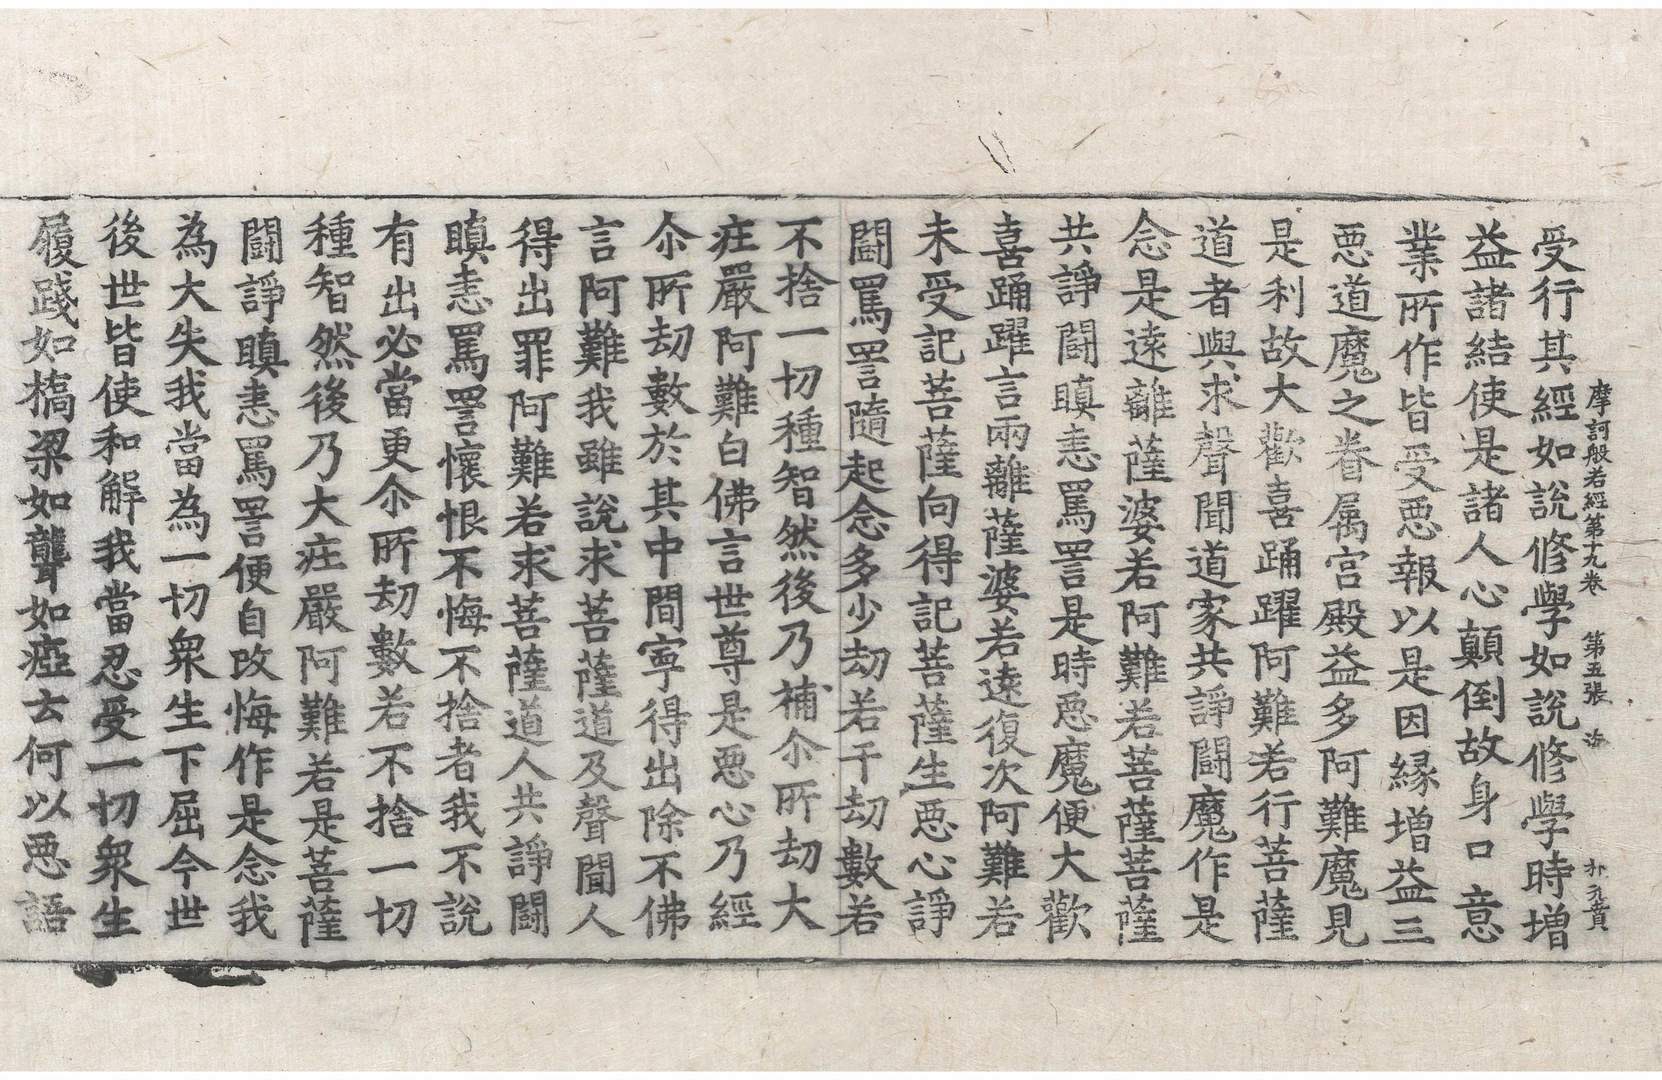 摩訶般若經第十九卷　第五張　海
受行其經如說修學如說修學時增
益諸結使是諸人心顛倒故身口意
業所作皆受惡報以是因緣增益三
惡道魔之眷属宮殿益多阿難魔見
是利故大歡喜踊躍阿難若行菩薩
道者與求聲聞道家共諍鬪魔作是
念是遠離薩婆若阿難若菩薩菩薩
共諍鬪瞋恚罵詈是時惡魔便大歡
喜踊躍言兩離薩婆若遠復次阿難若
未受記菩薩向得記菩薩生惡心諍
鬪罵詈隨起念多少劫若干劫數若
不捨一切種智然後乃補尒所劫大
庄嚴阿難白佛言世尊是惡心乃經
尒所劫數於其中間寧得出除不佛
言阿難我雖說求菩薩道及聲聞人
得出罪阿難若求菩薩道人共諍鬪
瞋恚罵詈懷恨不悔不捨者我不說
有出必當更尒所劫數若不捨一切
種智然後乃大庄嚴阿難若是菩薩
鬪諍瞋恚罵詈便自改悔作是念我
為大失我當為一切衆生下屈今世
後世皆使和解我當忍受一切衆生
履踐如橋梁如聾如瘂云何以惡語